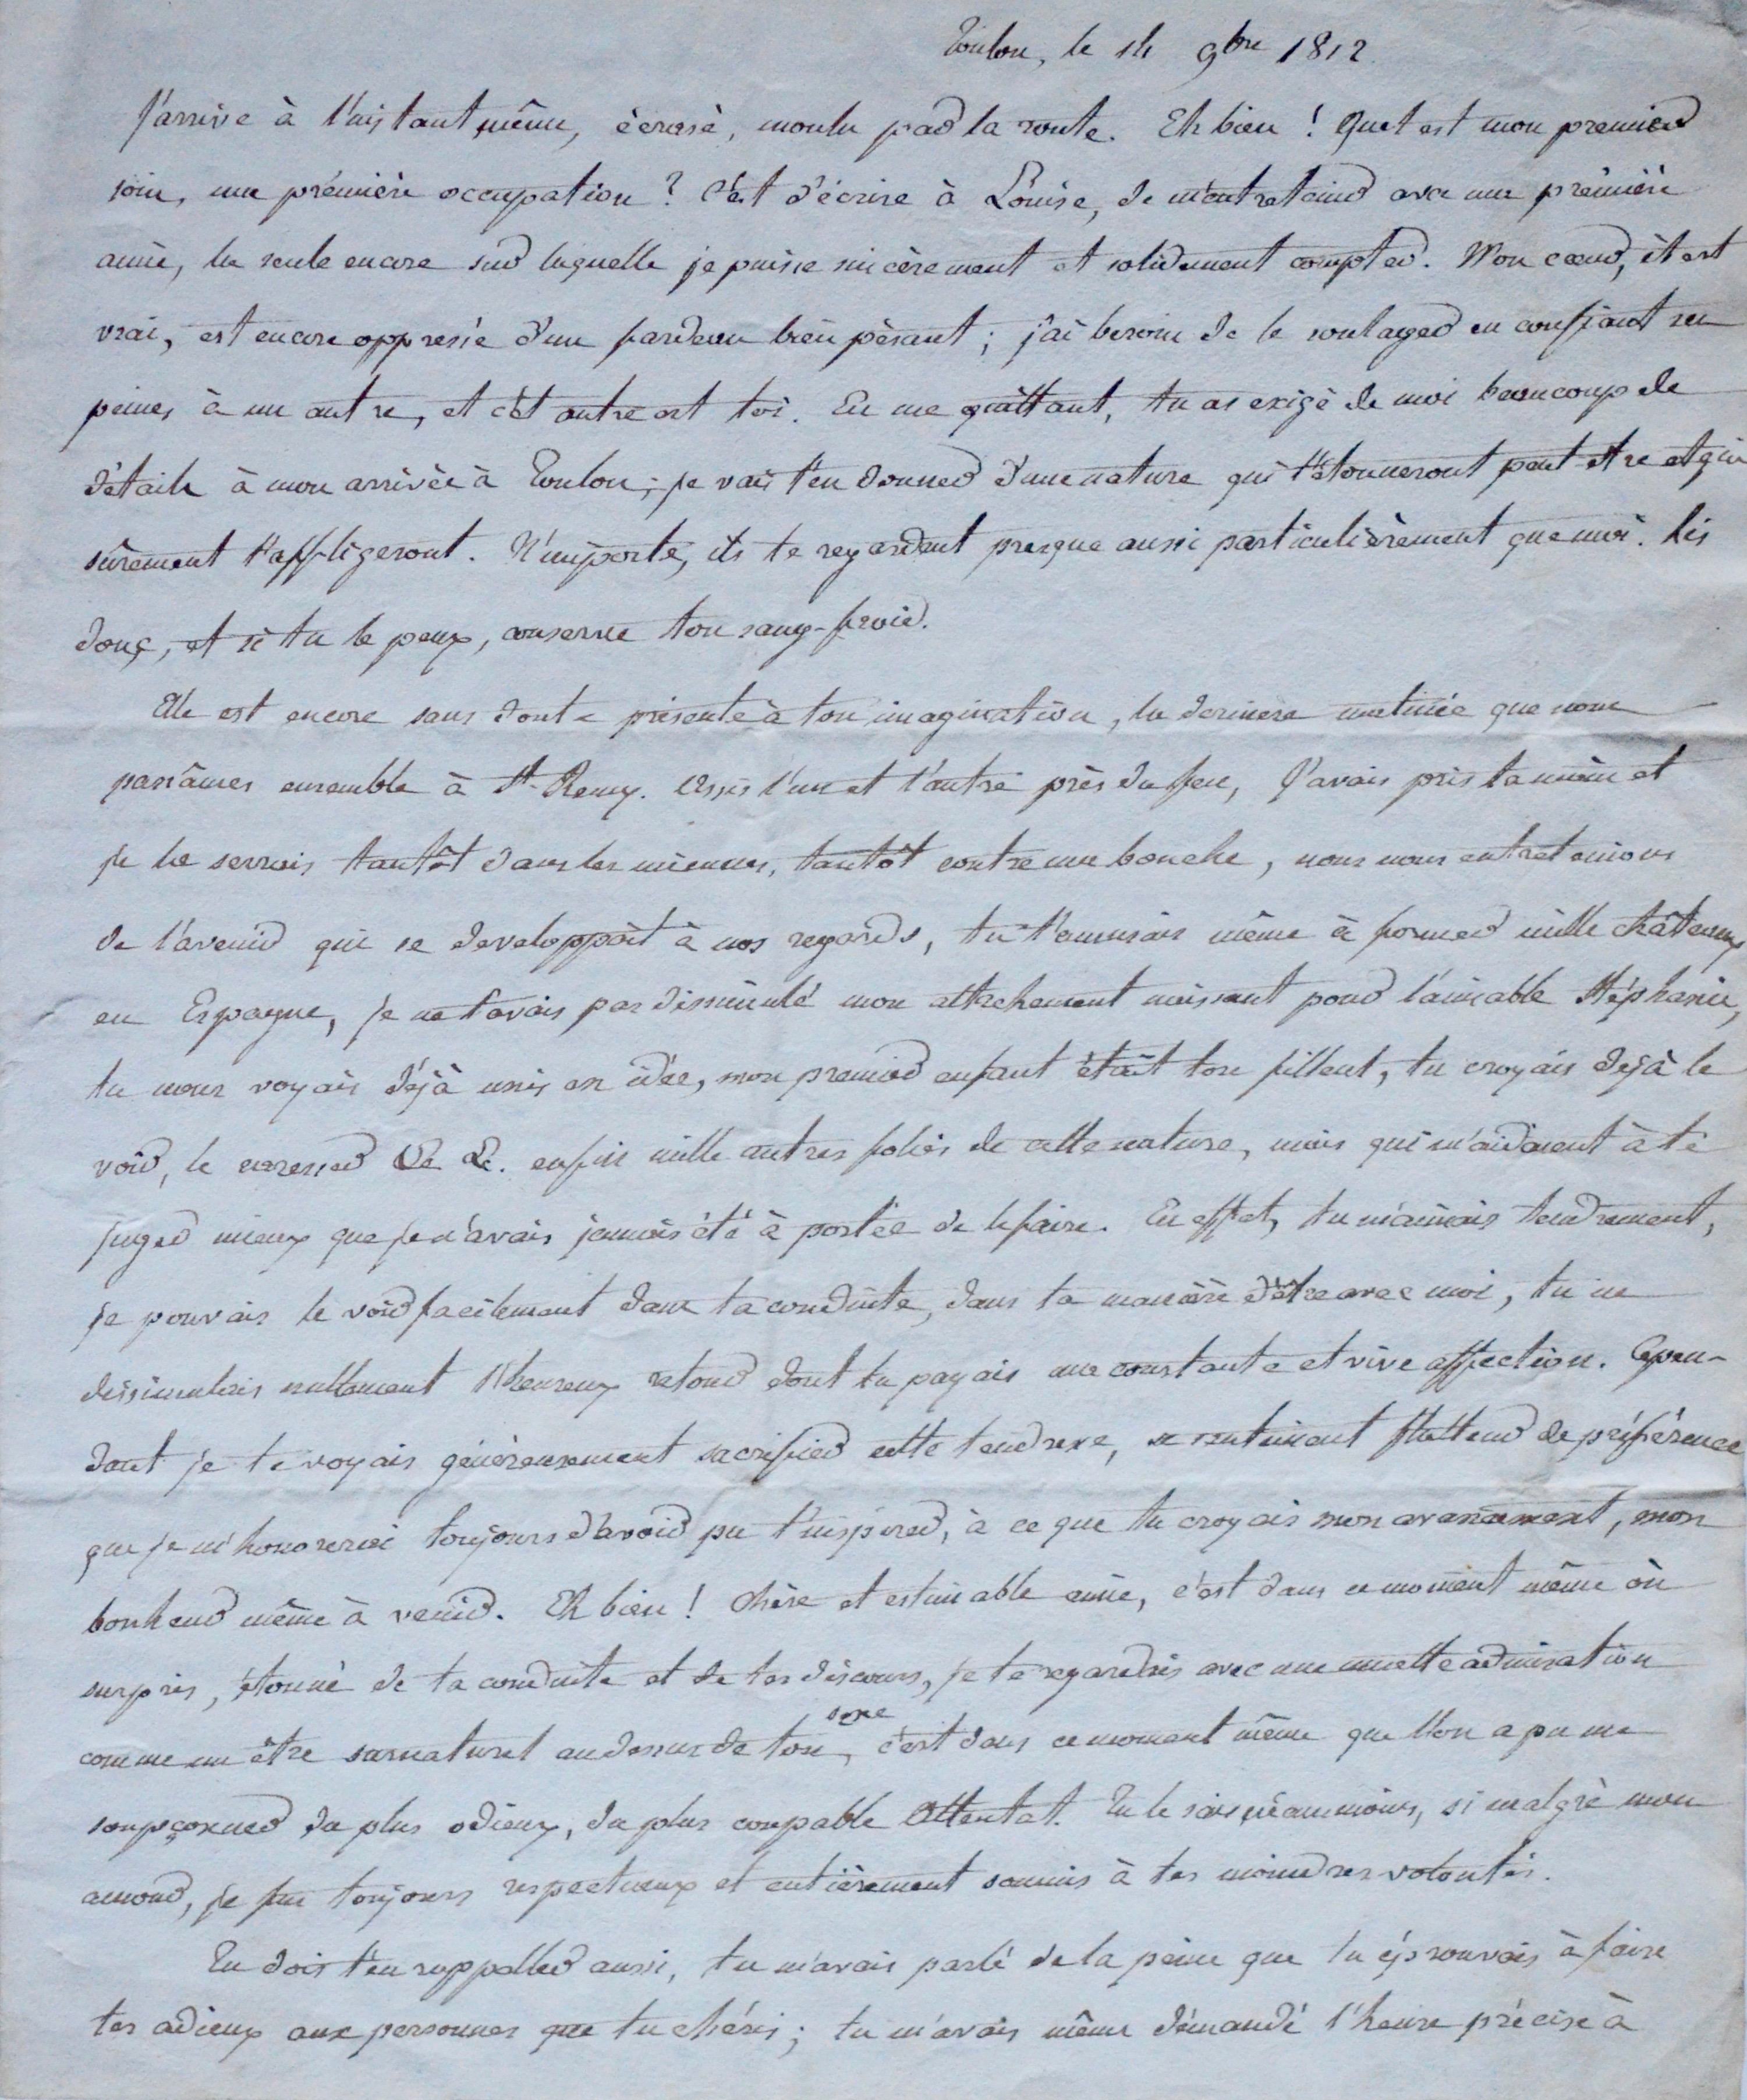 Toulon, le 14 9bre 1812.
J'arrive à l'instant même, écrasé, moulu par la route. Eh bien ! Quel est mon premier
soin, ma première occupation ? C'est d'écrire à Louise, de m'entretenir avec ma première
amie, la seule encore sur laquelle je puisse sincèrement et solidement compter. Mon cœur, il est
vrai, est encore oppressé d'un fardeau bien pésant ; j'ai besoin de le soulager en confiant ses
peines à un autre, et cèt autre est toi. En me quittant, tu as exigé de moi beaucoup de
détails à mon arrivée à Toulon ; je vais t'en donner d'une nature qui t'étonneront peut-être et qui
sûrement t'affligeront. N'importe, ils te regardent presque aussi particulièrement que moi. Lis
donc, et si tu le peux, conserve ton sang-froid.
Elle est encore sans doute présente à ton imagination, la dernière matinée que nous
passâmes ensemble à St Remy. Assis l'un et l'autre près du feu, J'avais pris ta main et
je la serrais tantôt dans les miennes, tantôt contre ma bouche, nous nous entretenions
de l'avenir qui se développait à nos regards, tu t'amusais même à former mille châteaux
en Espagne, je ne t'avais pas dissimulé mon attachement naissant pour l'aimable Stéphanie,
tu nous voyais déjà unis en idée, mon premier enfant était ton filleul, tu croyais déjà le
voir, le caresser &c &c. enfin mille autres folies de cette nature, mais qui m'aidaient à te
juger mieux que je n'avais jamais été à portée de le faire. En effet, tu m'aimais tendrement,
je pouvais le voir facilement dans ta conduite, dans ta manière d'être avec moi, tu ne
dissimulais nullement l'heureux retour dont tu payais ma constante et vive affection. Cepen-
dant je te voyais généreusement sacrifier cette tendresse, ce sentiment flatteur de préférence
que je m'honorerai toujours d'avoir pu t'inspirer, à ce que tu croyais mon avancement, mon
bonheur même à venir. Eh bien ! chère et estimable amie, c'est dans ce moment même où
surpris, étonné de ta conduite et de tes discours, je te regardais avec une muette admiration
comme un être surnaturel au dessus de ton sexe, c'est dans ce moment même que l'on a pu me
soupçonner du plus odieux, du plus coupable Attentat. Tu le sais néanmoins, si malgré mon
amour, je fus toujours respectueux et entièrement soumis à tes moindres volontés.
Tu dois t'en rappeller aussi, tu m'avais parlé de la peine que tu éprouvais à faire
tes adieux aux personnes que tu chéris ; tu m'avais même démandé l'heure précise à